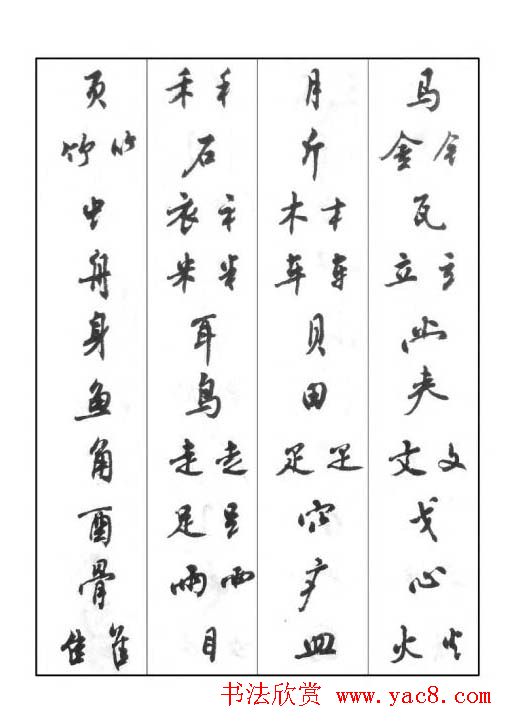 马 金 金 瓦 立 立 夫 文 文 戈 心 火 火
月 斤 木 木 车 车 贝 田 足 足 穴 疒 皿
禾 禾 石 衣 衤 米 米 耳 鸟 走 走 足 足 雨 雨 目
页 竹 竹 虫 舟 身 鱼 角 酉 骨 隹 隹
书法欣赏 www.yac8.com